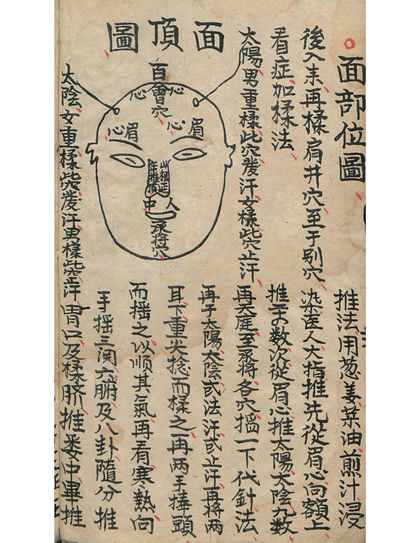 面部位圖
推法用葱姜菜油煎汁浸
染医人大指推先從眉心向額上
數次從眉心推太陽太陰九數
再天庭至承將各穴掐一下代針法
再于太陽太陰或法汗或止汗再將兩
耳下重尖捻而揉之再兩手捧頭
而摇之以順其氣再看寒熱向
手摇三関六腑及八卦隨分推
胃口及揉臍推委中畢推
後入耒再揉肩井穴至于別穴
看症加揉法
太陽男重揉此穴發汗女揉此穴止汗
面頂圖
百會穴
心
心
眉
心
眉心
山根
年
人中
承將穴
太陰女重揉此穴發汗男揉此穴止汗